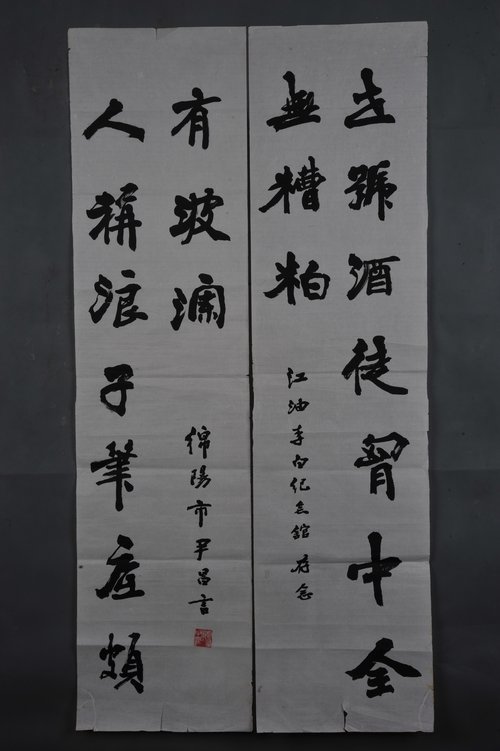 世號酒徒胷中全
無糟粕
江油李白纪念館存念
人稱浪子筆底頗
有波瀾
綿陽市尹昌言